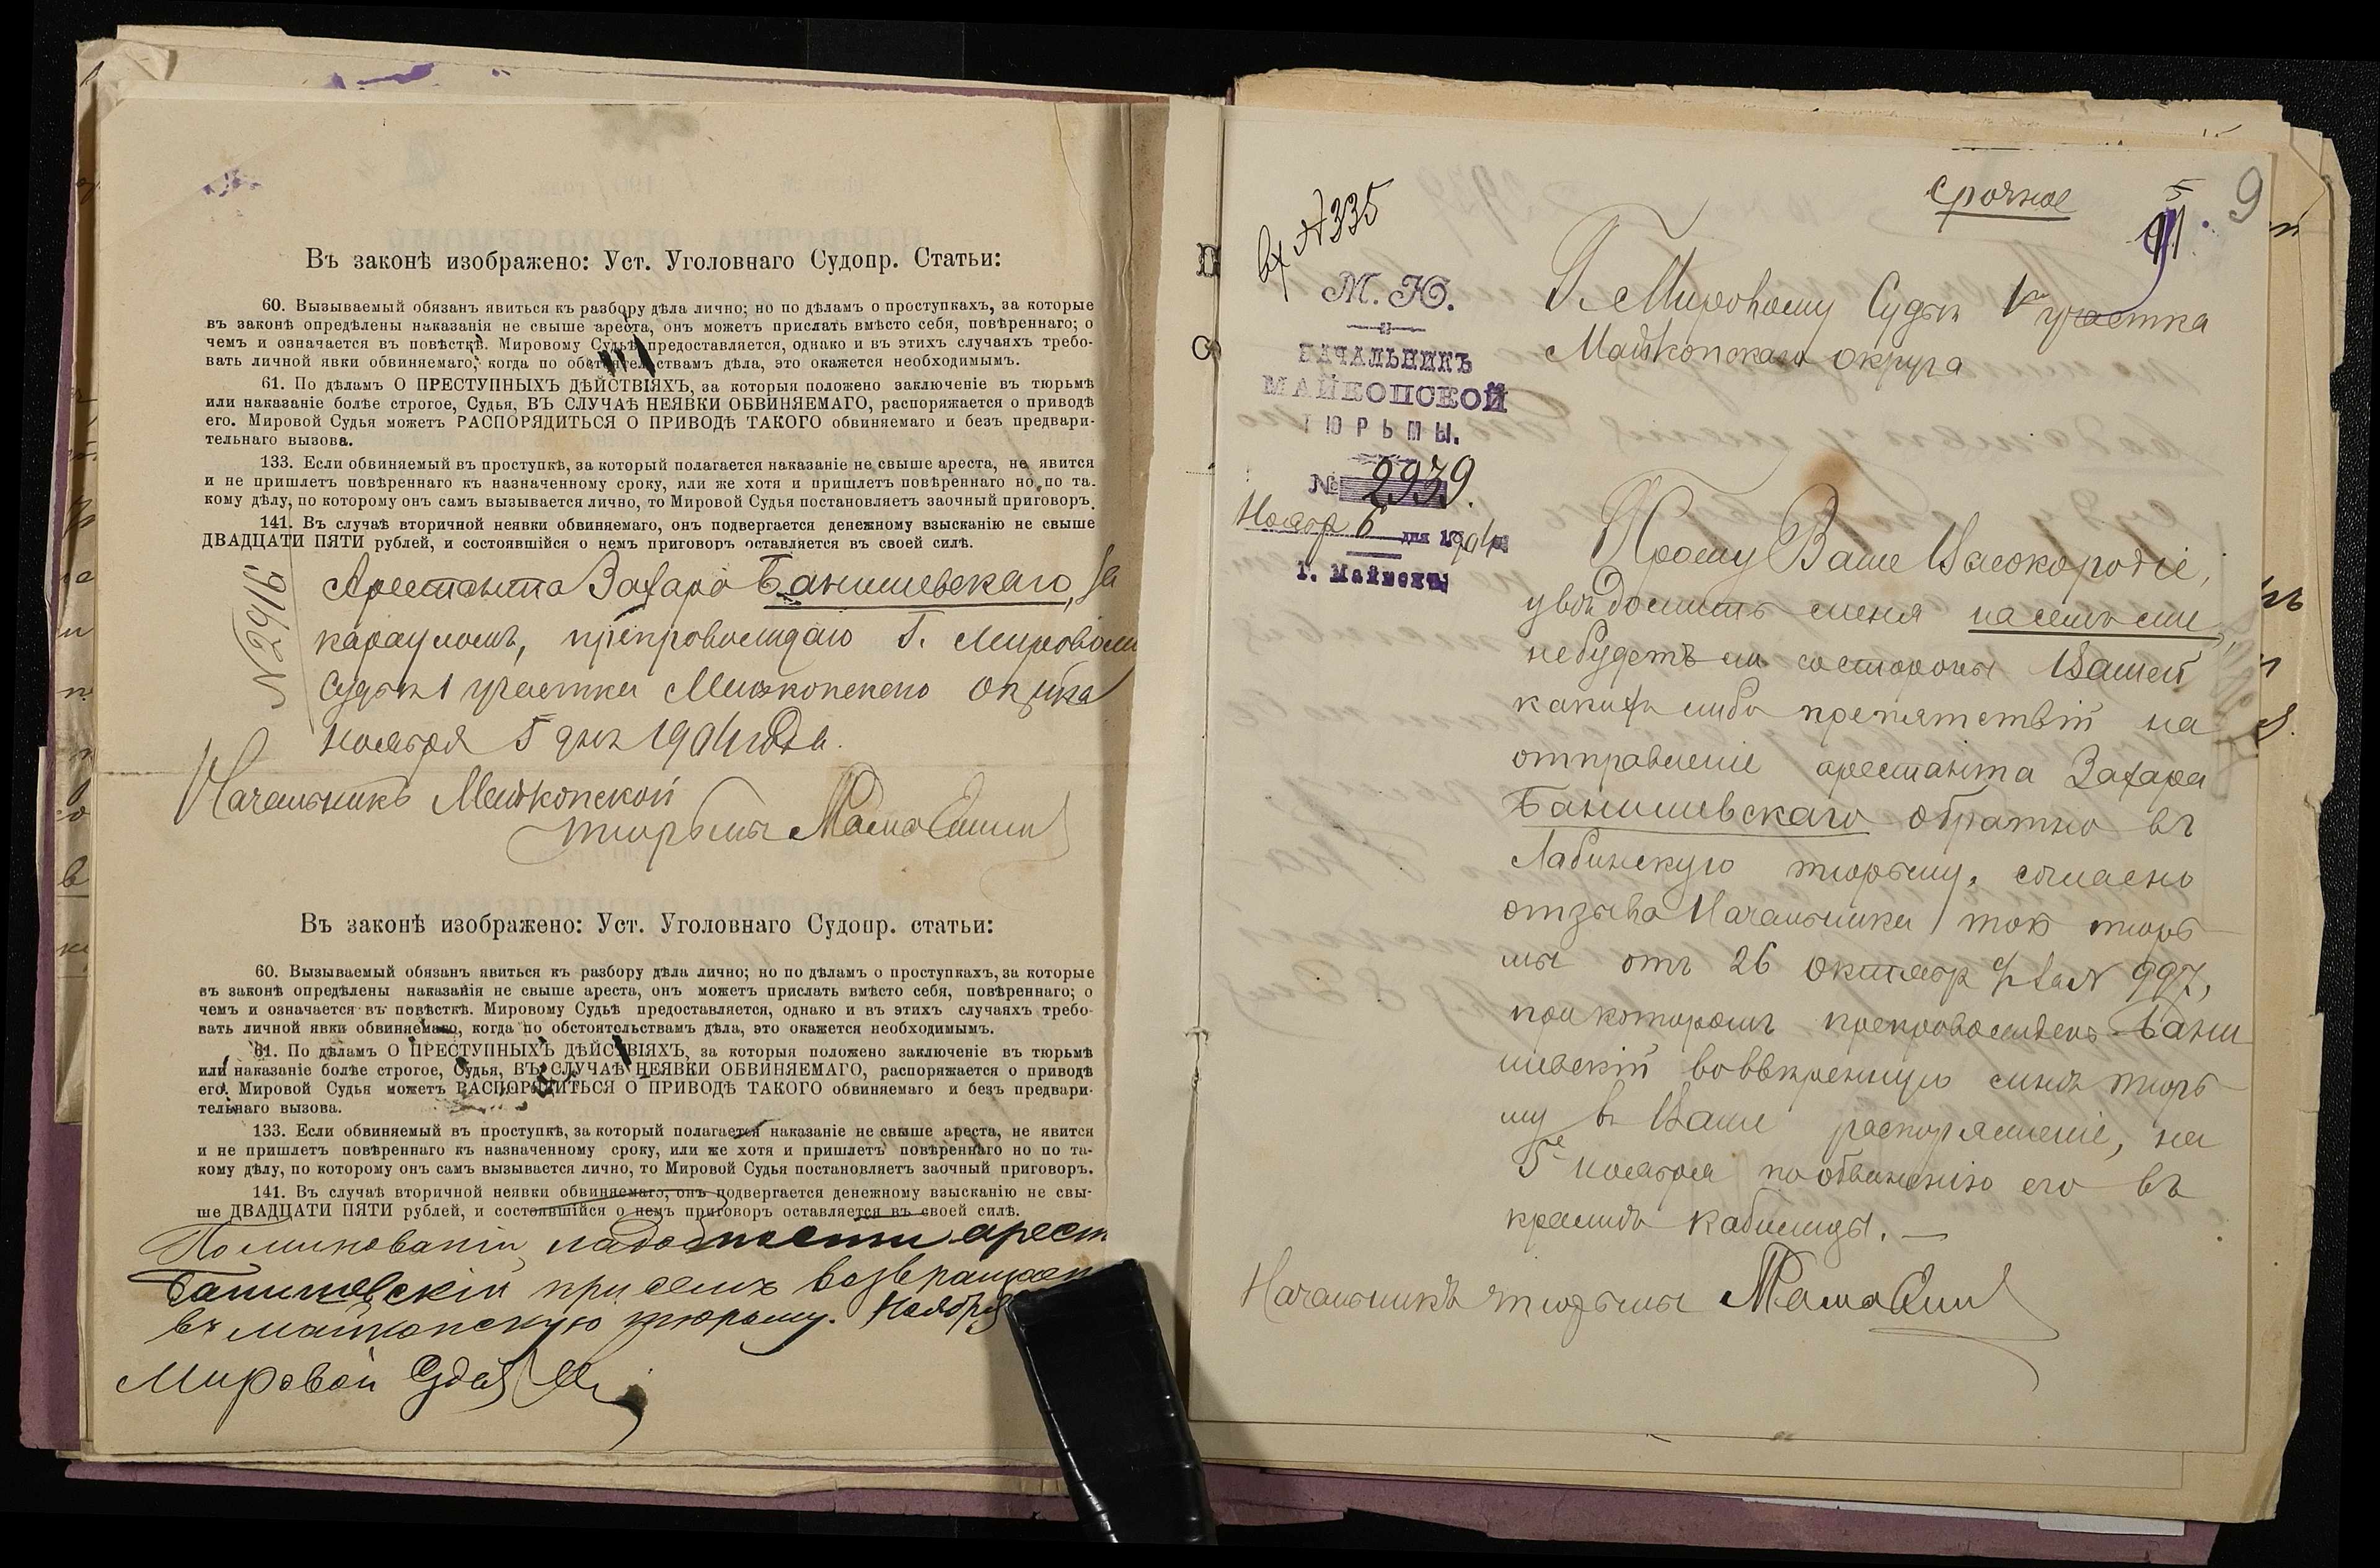 Въ законѣ изображено: Уст. Уголовнаго Судопр. Статьи:
60. Вызываемый обязанъ явиться къ разбору дѣла лично; но по дѣламъ о проступкахъ, за которые
въ законѣ опредѣлены наказанія не свыше ареста, онъ можетъ прислать вмѣсто себя, повѣреннаго; о
чемъ и означается въ повѣсткѣ. Мировому Судьѣ предоставляется, однако и въ этихъ случаяхъ требо-
вать личной явки обвиняемаго, когда по обстоятельствамъ дѣла, это окажется необходимымъ.
61. По дѣламъ О ПРЕСТУПНЫХЪ ДѢЙСТВІЯХЪ, за которыя положено заключеніе въ тюрьмѣ
или наказаніе болѣе строгое, Судья, ВЪ СЛУЧАѢ НЕЯВКИ ОБВИНЯЕМАГО, распоряжается о приводѣ
его. Мировой Судья можетъ РАСПОРЯДИТЬСЯ О ПРИВОДѢ ТАКОГО обвиняемаго и безъ предвари-
тельнаго вызова.
133. Если обвиняемый въ проступкѣ, за который полагается наказаніе не свыше ареста, не явится
и не пришлетъ повѣреннаго къ назначенному сроку, или же хотя и пришлетъ повѣреннаго но по та-
кому дѣлу, по которому онъ самъ вызывается лично, то Мировой Судья постановляетъ заочный приговоръ.
141. Въ случаѣ вторичной неявки обвиняемаго, онъ подвергается денежному взысканію не свыше
ДВАДЦАТИ ПЯТИ рублей, и состоявшійся о немъ приговоръ оставляется въ своей силѣ.
№ 2916
Арестанта Захара Банишевскаго, за
карауломъ, препровождаю Г. Мировому
Судьѣ 1 участка Майкопскаго
ноября 5 дня 1904 года.
Начальникъ Майкопской
тюрьмы
Въ законѣ изображено: Уст. Уголовнаго Судопр. статьи:
60. Вызываемый обязанъ явиться къ разбору дѣла лично; но по дѣламъ о проступкахъ, за которые
въ законѣ опредѣлены наказанія не свыше ареста, онъ можетъ прислать вмѣсто себя, повѣреннаго; о
чемъ и означается въ повѣсткѣ. Мировому Судьѣ предоставляется, однако и въ этихъ случаяхъ требо-
вать личной явки обвиняемаго, когда по обстоятельствамъ дѣла, это окажется необходимымъ.
61. По дѣламъ О ПРЕСТУПНЫХЪ ДѢЙСТВІЯХЪ, за которыя положено заключеніе въ тюрьмѣ
или наказаніе болѣе строгое, Судья, ВЪ СЛУЧАѢ НЕЯВКИ ОБВИНЯЕМАГО, распоряжается о приводѣ
его. Мировой Судья можетъ РАСПОРЯДИТЬСЯ О ПРИВОДѢ ТАКОГО обвиняемаго и безъ предвари-
тельнаго вызова.
133. Если обвиняемый въ проступкѣ, за который полагается наказаніе не свыше ареста, не явится
и не пришлетъ повѣреннаго къ назначенному сроку, или же хотя и пришлетъ повѣреннаго но по та-
кому дѣлу, по которому онъ самъ вызывается лично, то Мировой Судья постановляетъ заочный приговоръ.
141. Въ случаѣ вторичной неявки обвиняемаго, онъ подвергается денежному взысканію не свы-
ше ДВАДЦАТИ ПЯТИ рублей, и состоявшійся о немъ приговоръ оставляется въ своей силѣ.
По минованіи надобности арест
Банишевскій при семъ возвращает
въ майкопскую тюрьму. Ноября
Мировой Судья
срочное
5
9
Вх №335
М. Ю.
НАЧАЛЬНИКЪ
МАЙКОПСКОЙ
ТЮРЬМЫ.
№ 2939.
Ноябр 6 дня 1904
Г. Майкопъ
Г. Мировому Судьѣ 1го участка
Майкопскаго округа
Прошу Ваше Высокородіе,
увѣдомить меня на семъ же
небудетъ ли со стороны Вашей
какихъ либо препятствій на
отправленіе арестанта Захара
Банишевскаго обратно въ
Лабинскую тюрьму, согласно
отзыва Начальника той тюрь
мы отъ 26 октябр с/г за № 997,
при которомъ препровожденъ Бани
шевскій во ввѣренную мнѣ тюрь
му въ Ваше распоряженіе, на
5е ноября по обвиненію его въ
кражѣ кабылицы. —
Начальникъ тюрьмы